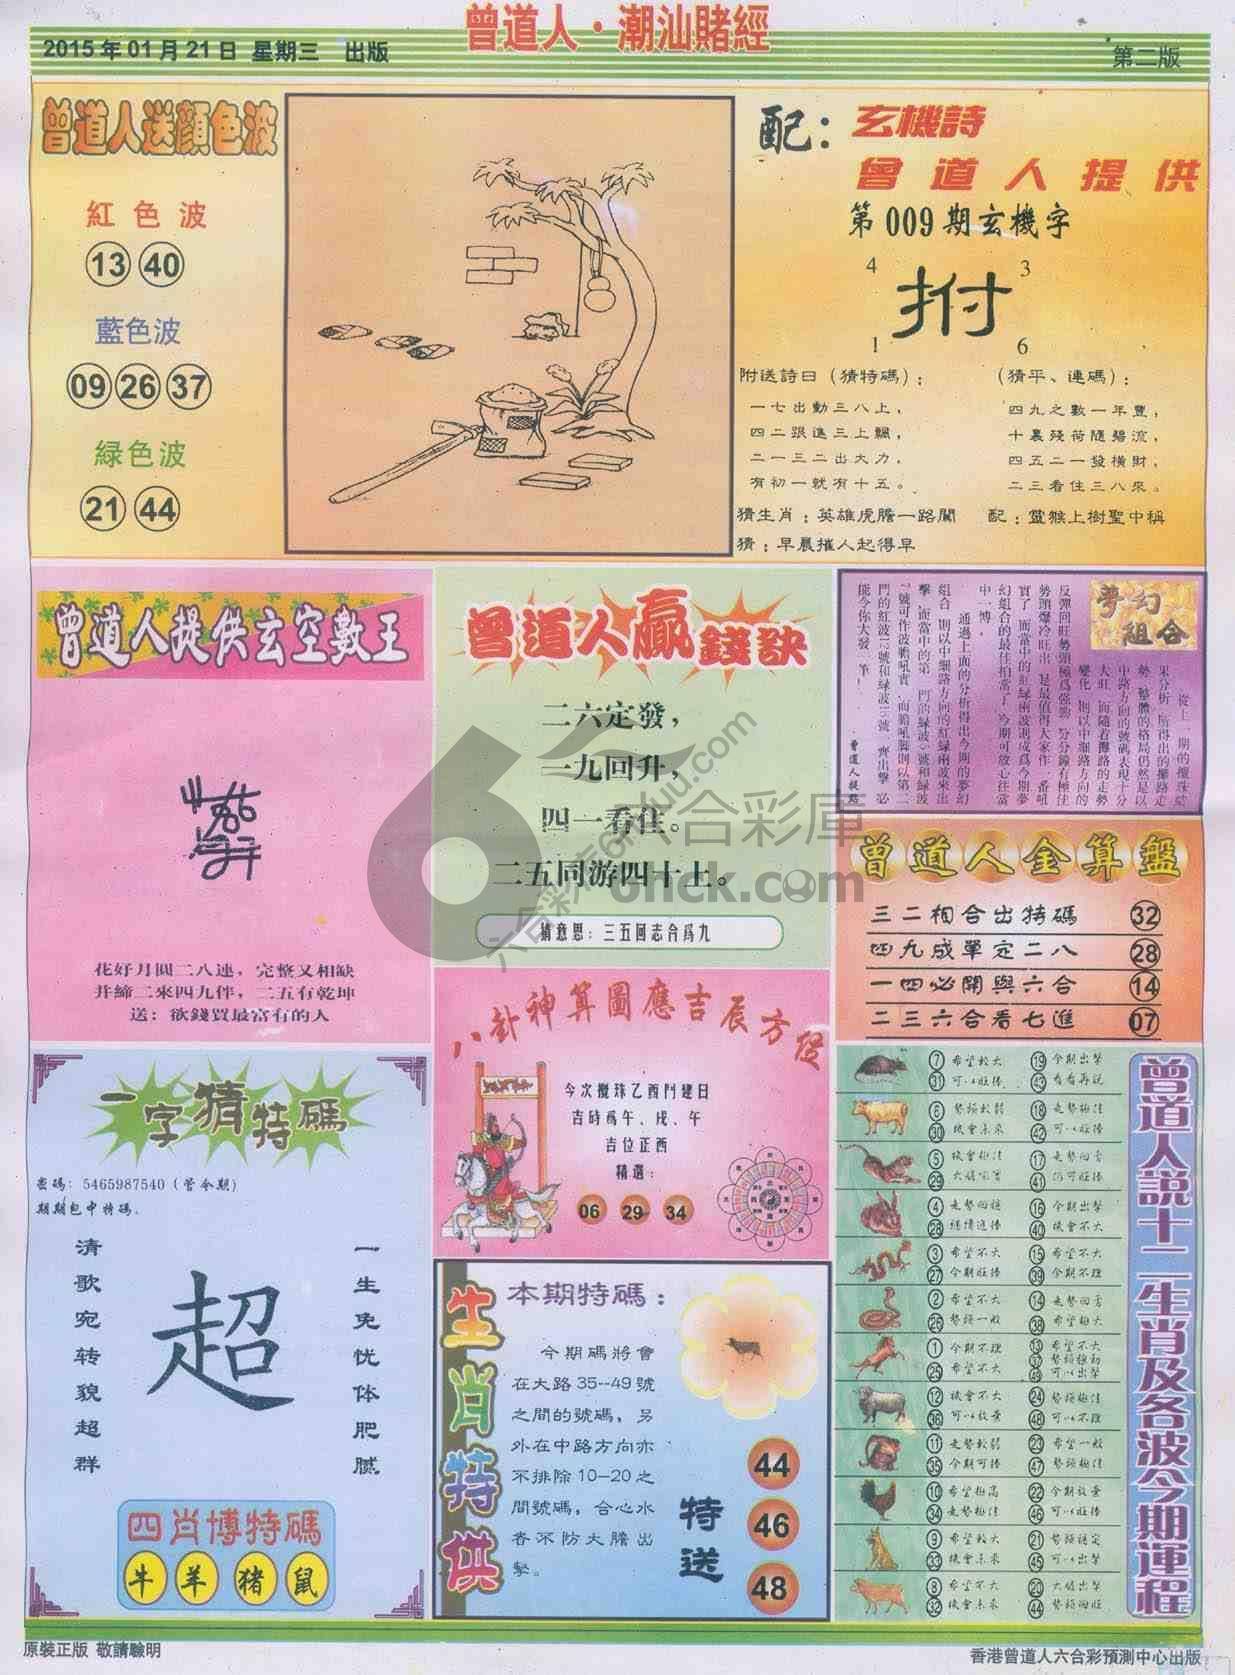 曾道人·潮汕賭經
2015年01月21日 星期三 出版
第二版
曾道人送顔色波
紅色波
13 40
藍色波
09 26 37
緑色波
21 44
配：
玄機詩
曾道人提供
第009期玄機字
4 3
拊
1 6
附送詩曰（猜特碼）：
一七出動三八上，
四二跟進三上飄，
二一三二出大力，
有初一就有十五。
（猜平、連碼）：
四九之數一年豐，
十裏殘荷隨碧流，
四五二一發橫財，
二三看住三八來。
猜生肖：英雄虎膽一路闖
配：靈猴上樹聖中稱
猜：早晨摧人起得早
曾道人提供玄空數王
花好月圓二八連，完整又相缺
并締二來四九伴，二五有乾坤
送：欲錢買最富有的人
曾道人贏錢訣
二六定發，
一九回升，
四一看住。
二五同游四十上。
猜意思：三五回志合爲九
夢幻組合
從上一期的攪珠結
果分析，所得出的攤路走
勢，整體的格局仍然是以
中路方向的號碼表現十分
大旺，而隨着攤路的走勢
變化，則以中細路方向的
反彈回旺勢頭極爲強勁，
勢頭爆冷旺出，是最值得大家作一番
中一博，
曾道人提點
曾道人金算盤
三二相合出特碼 32
四九成單定二八 28
一四必開與六合 14
二三六合看七進 07
一字猜特碼
密碼：5465987540（管令期）
期期包中特碼.
清歌宛转貌超群
超
一生免忧体肥腻
四肖博特碼
牛 羊 猪 鼠
八卦神算圖應吉辰方位
今次攪珠乙酉門建日
吉時爲午、戌、午
吉位正西
精選：
06 29 34
生肖特供
本期特碼：
今期碼將會
在大路35—49號
之間的號碼，另
外在中路方向亦
不排除10—20之
間號碼，合心水
者不防大膽出
擊。
特送
44
46
48
曾道人說十二生肖及各波今期運程
7 希望較大 19 今期出擊
31 可以旺捧 43 看看再説
6 勢頭較弱 18 走勢極佳
30 機會未來 42 可以旺捧
5 機會極佳 17 走勢回勇
29 41
4 16 今期出擊
28 40 機會不大
3 希望不大 15 希望不大
27 今期旺捧 39 今期不理
2 希望不大 14 走勢回勇
26 勢頭一般 38 希望極大
1 今期不理 13 希望不大
25 希望不大 37
49 可以出擊
12 機會不大 24 勢頭極佳
36 可以放量 48 可以不理
11 走勢較弱 23 希望一般
35 今期可捧 47 勢頭極佳
10 希望極高 22 今期放量
34 走勢極佳 46 可以旺捧
9 希望較大 21 勢頭穩定
33 機會未來 45 可以出擊
8 希望不大 20 大膽出擊
32 機會未來 44 勢頭回旺
六合彩庫
6hck.com
原裝正版 敬請驗明
香港曾道人六合彩預測中心出版